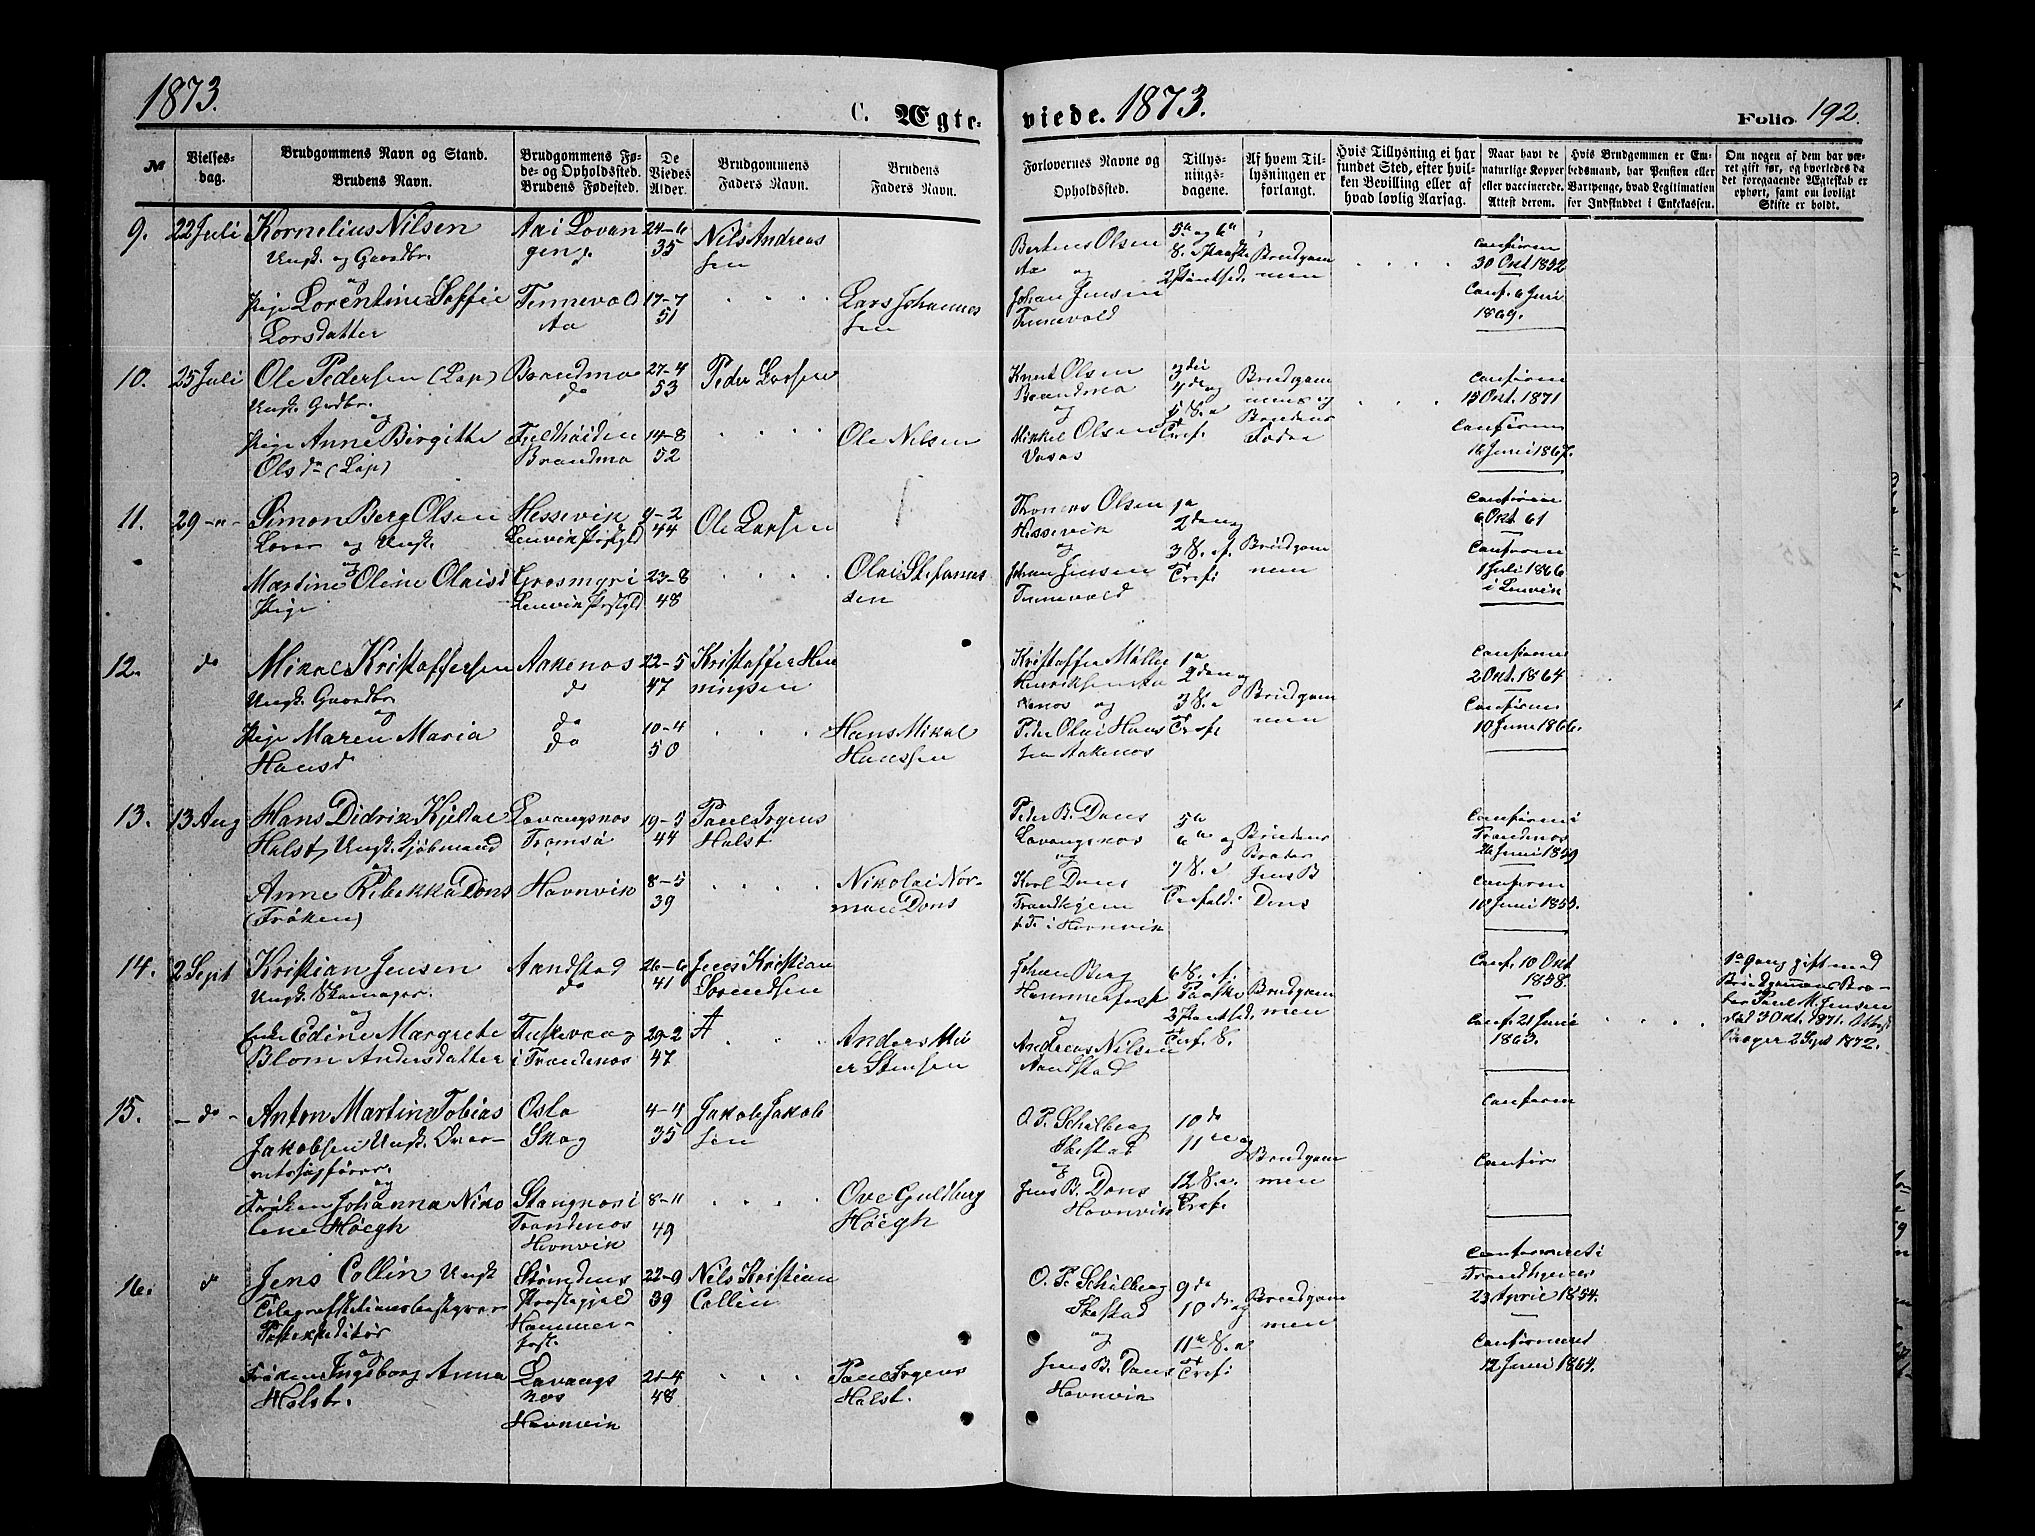 1873.
C. Ægte-
viede. 1873.
Folio 192.
№
Vielses-
dag.
Brudgommens Navn og Stand.
Brudens Navn.
Brudgommens Fø-
de- og Opholdssted.
Brudens Fødested.
De
Viedes
Alder.
Brudgommens
Faders Navn.
Brudens
Faders Navn.
Forlovernes Navne og
Opholdssted.
Tillys-
nings-
dagene.
Af hvem Til-
lysningen er
forlangt.
Hvis Tillysning ei har
fundet Sted, efter hvil-
ken Bevilling eller af
hvad lovlig Aarsag.
Naar havt de
naturlige Kopper
eller vaccinerede.
Attest derom.
Hvis Brudgommen er Em-
bedsmand, har Pension eller
Vartpenge, hvad Legitimation
for Indskuddet i Enkekassen.
Om nogen af dem har væ-
ret gift før, og hvorledes da
det foregaaende Ægteskab er
ophørt, samt om lovligt
Skifte er holdt.
9. 22 Juli Kornelius Nilsen
Ungk. og Gaardbr.
og
Pige Lorentine Soffie
Larsdatter
Aa i Lavan
gen
Tennevol
Aa
24-6
35
17-7
51
Nils Andreas
sen
Lars Johannes
sen
Berteus Olsen
Aa og
Johan Jensen
Tennevold
5te og 6te
8. e Paaske
Brudgom
men
Confirm
30 Okt 1852
Conf. 6 Juni
1869.
10. 25 Juli Ole Pedersen (Lap)
Ungk. Grdbr.
og
Pige Anne Birgitte
Ols dr (Lap)
Brandmo
do
Fjeldheiden
Brandmo
27-4
53
14-8
52
Peder Larsen
Ole Nilsen
Knut Olsen
Brandmo
og
Mikkel Olsen
Vasas
3die
4de og
5 S. e
Tref.
Brudgom
men og
Brudens
Fader
Confirm
15 Okt. 1871
Confirm
16 Juni 1867.
11. 29 -"- Simon Berg Olsen
og Ungk.
og
Martine Oline Olaisd
Pige
Hessevik
Lenvik Prstgld
Grasmyr i
Lenvik Prstgld
9-2
44
23-8
48
Ole Larsen
Olai Stefanus
sen
Thomas Olsen
Hessevik
og
Johan Jensen
Tennevold
1ste
2den og
3 S. ef.
Trefo
Brudgom
men
Confirm
6 Okt 61
Confirm
1 Juli 1866
i Lenvik
12. do Mikal Kristoffersen
Ungk. Gaardbr
og
Pige Maren Maria
Hansd
Aakenes
do
do
do
22-5
47
10-4
50
Kristoffer Hen
ningsen
Hans Mikal
Hanssen
Kristoffer Møller
Henriksen Aa
kenes og
Peder Olai Hans
sen Aakenes
1ste
2den og
3 S. e
Trefo
Brudgom
men
Confirm
2 Okt. 1864
Confirm
10 Juni 1866.
13. 13 Aug Hans Didrik Kjeldal
Holst, Ungk. Sjømand
og
Anne Rebekka Dons
(Frøken)
Lavangsnes
Tromsø
Havnvik
19-5
44
8-5
39
Paul Irgens
Holst
Nikolai Nor-
man Dons
Peder B. Dons
Lavangsnes
og
Karl Dons
Trondhjem
p. T. i Havnvik
5te
6te og
7 S. e
Trefold.
Brudens
Broder
Jens B
Dons
Confirm i
Trondenes
26 Juni 1859
Confirm
10 Juni 1853.
14. 2 Sept Kristian Jensen
Ungk. Skomager.
og
Enke Edine Margrete
Blom Andersdatter
Aandstad
do
Tuskevaag
i Trondenes
26-6
41
29-2
47
Jens Kristian
Sørendsen
Anders Mei
er Stensen
Johan Berg
Hammerfest
og
Andreas Nilsen
Aandstad
6 S. ef.
Paaske
Tref. S.
Brudgom
men
Conf. 10 Okt
1858.
Conf. 21 Juni
1863.
1ste gang gift med
Brudgommens Bro-
der Paul M. Jensen
død 3 Okt. 1871. Attest
2 Sept 1872.
15. - do - Anton Martin Tobias
Jakobsen Ungk. Over-
retssagfører.
og
Frøken Johanna Niko
line Höegh
Oslo
Skog
Stangnes i
Trondenes
Havnvik
4-4
35
8-11
49
Jakob Jakob
sen
Ove Guldberg
Höegh
O. P. Schilberg
Skestad
og
Jens B. Dons
Havnvik
10de
11te og
12 S. e.
Trefo
Brudgom
men
Confirm
Confir
16. do Jens Collin Ungk
Telegrafstationsbestyrer
Postexpeditør
og
Frøken Ingeborg Anna
Holst.
Prestegjeld
Hammer-
fest.
Lavangs
nes
Havnvik
22-9
39
21-4
48
Nils Kristian
Collin
Paul Irgens
Holst.
O. P. Schilberg
Skestad
og
Jens B. Dons
Havnvik
9de
10de og
11te S. e
Trefo
Brudgom
men
Confirmeret i
Trondhjem
23 April 1854.
Confirmeret
12 Juni 1864.